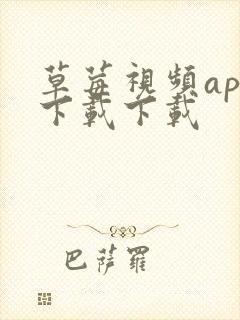 草莓視頻ap
下載下載
巴薩羅